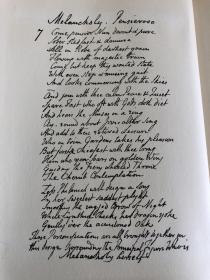 Melancholy. Penseroso
7 Come pensive Nun devout & pure
Sober Stedfast & demure
All in Robe of darkest grain
Flowing with majestic train
Come but keep thy wonted state
With even step & musing gait
And looks commercing with the Skies
And join with thee calm Peace & Quiet
Spare Fast who oft with Gods doth diet
And hears the Muses in a ring
Ay round about Joves altar sing
And add to these retired Leisure
Who in trim Gardens takes his pleasure
But first & Chiefest with thee bring
Him who yon soars on golden Wing
Guiding the Fiery wheeled Throne
The Cherub Contemplation
Less Philomel will deign a song
In her sweetest saddest plight
Smoothing the rugged Brow of Night
While Cynthia Checks her dragon yoke
Gently oer the accustomd Oak
These Personifications are all brought together in
this design surrounding the Principal Figure who is
Melancholy herself